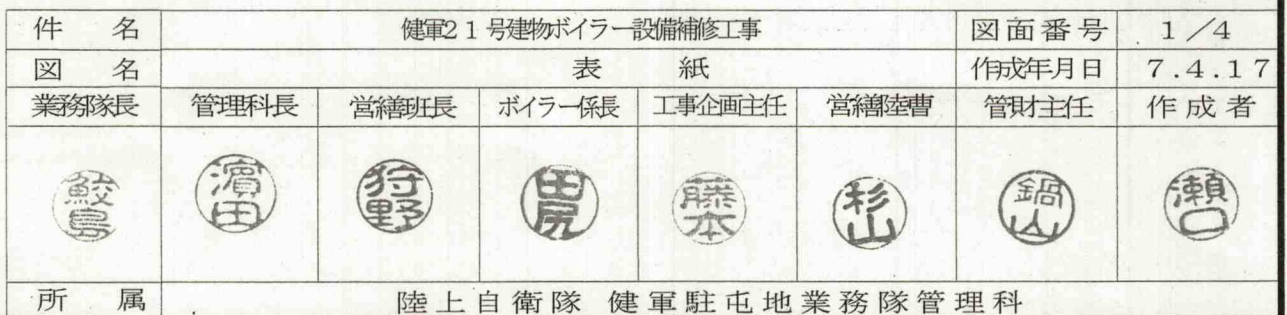 件名 健軍21号建物ボイラー設備補修工事 図面番号 1/4
図名 表紙 作成年月日 7.4.17
業務隊長 管理科長 営繕班長 ボイラー係長 工事企画主任 営繕陸曹 管財主任 作成者
鮫島 濱田 狩野 田尻 藤本 杉山 鍋山 瀬口
所属 陸上自衛隊 健軍駐屯地業務隊管理科